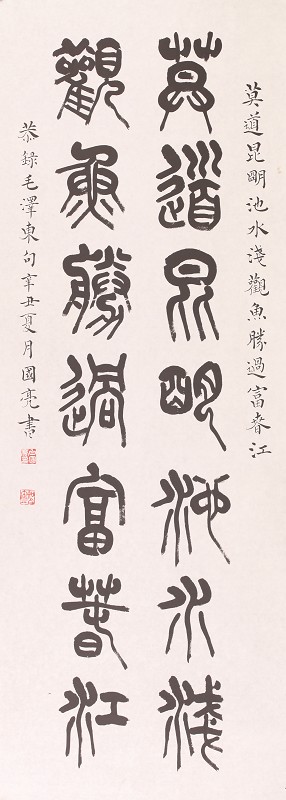 莫道昆明池水淺觀魚勝過富春江
莫道昆明池水淺
觀魚勝過富春江
恭錄毛澤東句辛丑夏月國亮書